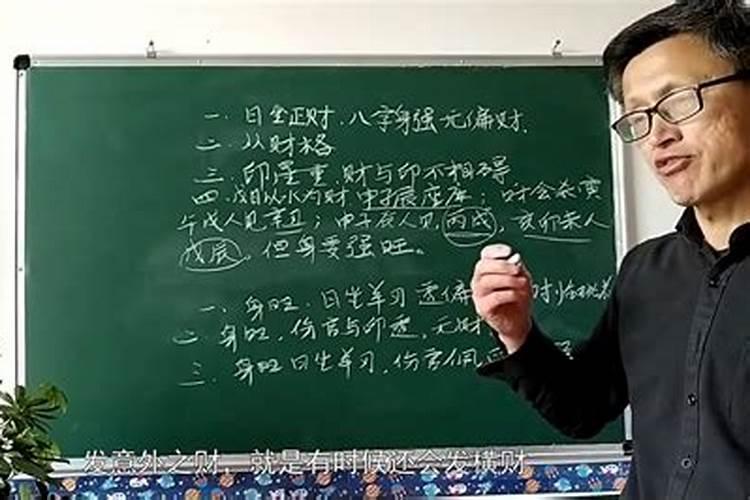 一、日坐正财、八字身强无偏财、
二、从财格
三、印星重,财与印不相碍
四、戊日以水为财 申子辰库;时会
午戌人见辛卯;申子辰人见丙戌,亥卯未人
戊辰,但身要强旺。
一、身旺、日坐羊刃透偏 时
二、身旺,伤官与印透,无财
三、身旺日坐羊刃,伤官佩
发意外之财,就是有时候还会发横财